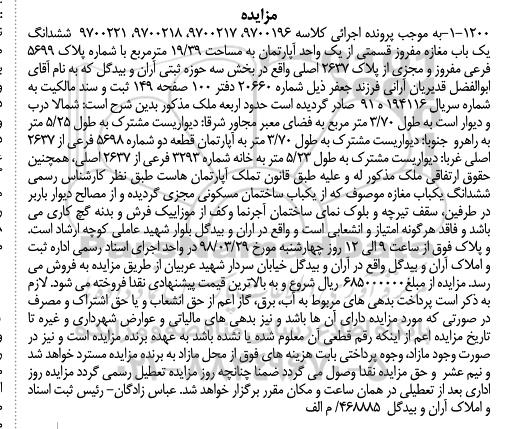 مزایده
۱-۱-۱۲۰۰-به موجب پرونده اجرائی کلاسه ۹۷۰۰۱۹۶، ۹۷۰۰۲۱۷، ۹۷۰۰۲۱۸، ۹۷۰۰۲۲۱ ششدانگ
یک باب مغازه مفروز قسمتی از یک واحد آپارتمان به مساحت ۱۹/۳۹ مترمربع با شماره پلاک ۵۶۹۹
فرعی مفروز و مجزی از پلاک ۲۶۳۷ اصلی واقع در بخش سه حوزه ثبتی آران و بیدگل که به نام آقای
ابوالفضل قدیریان آرانی فرزند جعفر ذیل شماره ۲۰۶۶۰ دفتر ۱۰۰ صفحه ۱۴۹ ثبت و سند مالکیت به
شماره سریال ۱۹۴۱۱۶ ه ۹۱ صادر گردیده است حدود اربعه ملک مذکور بدین شرح است: شمالا درب
و دیوار است به طول ۳/۷۰ متر مربع به فضای معبر مجاور شرقا: دیواریست مشترک به طول ۵/۲۵ متر
به راهرو جنوبا: دیواریست مشترک به طول ۳/۷۰ متر به آپارتمان قطعه دو شماره ۵۶۹۸ فرعی از ۲۶۳۷
اصلی غربا: دیواریست مشترک به طول ۵/۲۳ متر به خانه شماره ۳۲۹۳ فرعی از ۲۶۳۷ اصلی، همچنین
حقوق ارتفاقی ملک مذکور له و علیه طبق قانون تملک آپارتمان هاست طبق نظر کارشناس رسمی
ششدانگ یکباب مغازه موصوف که از یکباب ساختمان مسکونی مجزی گردیده و از مصالح دیوار باربر
در طرفین، سقف تیرچه و بلوک نمای ساختمان آجرنما وکف از موزاییک فرش و بدنه گچ کاری می
باشد و فاقد هرگونه امتیاز و انشعابی است و واقع در آران و بیدگل بلوار شهید عاملی کوچه ارشاد است.
و پلاک فوق از ساعت ۹ الی ۱۲ روز چهارشنبه مورخ ۹۸/۰۳/۲۹ در واحد اجرای اسناد رسمی اداره ثبت
و املاک آران و بیدگل واقع در آران و بیدگل خیابان سردار شهید عربیان از طریق مزایده به فروش می
رسد. مزایده از مبلغ۶۸۵۰۰۰۰۰۰ ریال شروع و به بالاترین قیمت پیشنهادی نقدا فروخته می شود. لازم
به ذکر است پرداخت بدهی های مربوط به آب، برق، گاز اعم از حق انشعاب و یا حق اشتراک و مصرف
در صورتی که مورد مزایده دارای آن ها باشد و نیز بدهی های مالیاتی و عوارض شهرداری و غیره تا
تاریخ مزایده اعم از اینکه رقم قطعی آن معلوم شده یا نشده باشد به عهده برنده مزایده است و نیز در
صورت وجود مازاد، وجوه پرداختی بابت هزینه های فوق از محل مازاد به برنده مزایده مسترد خواهد شد
و نیم عشر و حق مزایده نقدا وصول می گردد ضمنا چنانچه روز مزایده تعطیل رسمی گردد مزایده روز
اداری بعد از تعطیلی در همان ساعت و مکان مقرر برگزار خواهد شد. عباس زادگان– رئیس ثبت اسناد
و املاک آران و بیدگل ۴۶۸۸۸۵/ م الف